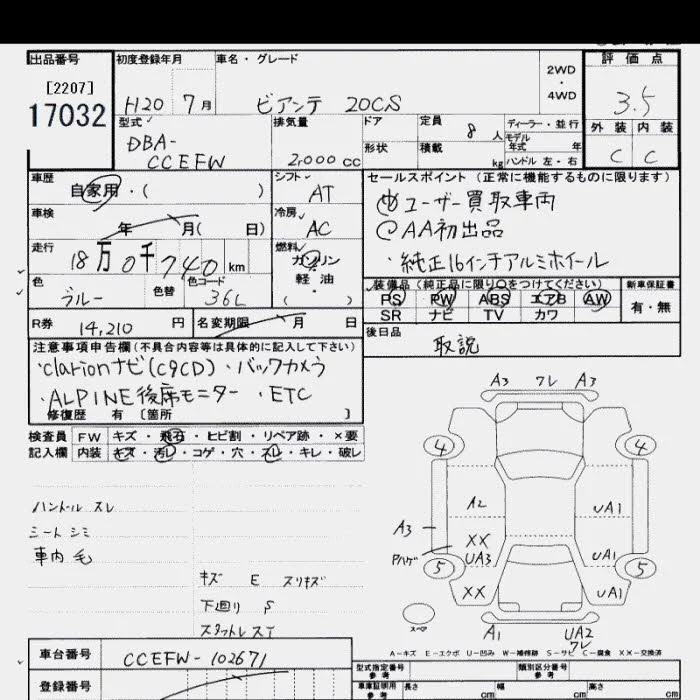 出品番号 初度登録年月 車名・グレード 評価点
[2207]
17032
H20 7月 ビアンテ 20CS 2WD・4WD 3.5
型式 排気量 ドア 定員 8人 ディーラー・並行 外装 内装
モデル年式 年
DBA-
CCEFW 2,000cc 形状 積載 kg ハンドル 左・右 C C
車歴 シフト セールスポイント (正常に機能するものに限ります)
自家用・( ) AT ユーザー買取車両
車検 冷房 AA初出品
年 月( 日) AC ・純正16インチアルミホイール
走行 燃料 装備品(純正品に限り○をつけてください) 新車保証書
18万0千740km ガソリン 軽油・( ) PS PW ABS エアB AW 有・無
色 色替 色コード SR ナビ TV カワ
ブルー 36L 後日品
R券 14,210円 名変期限 月 日 取説
注意事項申告欄(不具合内容等は具体的に記入して下さい)
・clarionナビ(C9CD)・バックカメラ
・ALPINE後席モニター ・ETC
修復歴 有 [箇所 ]
検査員 FW キズ・飛石・ヒビ割・リペア跡・×要
記入欄 内装 キズ・汚レ・コゲ・穴・スレ・キレ・破レ
A3 フレ A3
4 4
ハンドル スレ A2 UA1
シート シミ A3 XX
車内 毛 Pハゲ UA3 UA1
5 5
キズ E スリキズ XX UA1
下廻り S
スタットレスT スペア A1 UA2
フレ
A-キズ E-エクボ U-凹み W-補修跡 S-サビ C-腐食 XX-交換済
車台番号 CCEFW-102671 型式指定番号 参考 類別区分番号 参考
登録番号 車庫証明用 参考 長さ cm 幅 cm 高さ cm